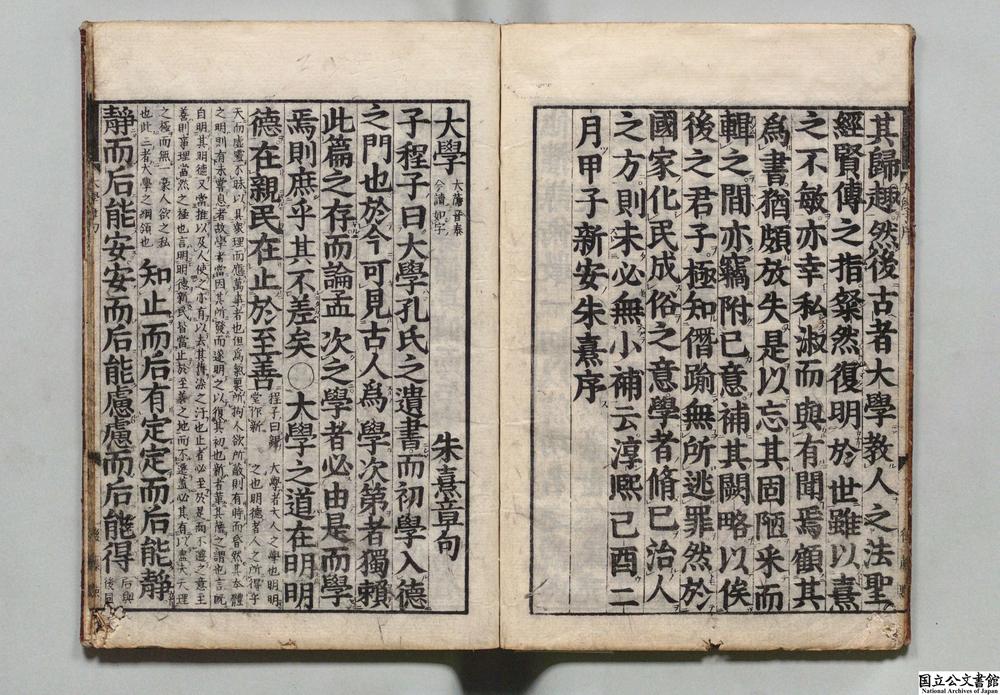 其歸趣然後古者大學教人之法聖
經賢傳之指粲然復明於世雖以熹
之不敏亦幸私淑而與有聞焉顧其
爲書猶頗放失是以忘其固陋采而
輯之間亦竊附己意補其闕略以俟
後之君子極知僭踰無所逃罪然於
國家化民成俗之意學者脩己治人
之方則未必無小補云淳熙己酉二
月甲子新安朱熹序
大學 大舊音泰今讀如字 朱熹章句
子程子曰大學孔氏之遺書而初學入德
之門也於今可見古人爲學次第者獨賴
此篇之存而論孟次之學者必由是而學
焉則庶乎其不差矣○大學之道在明明
德在親民在止於至善 程子曰親當作新 大學者大人之學也明明之也明德者人之所得乎
天而虛靈不昧以具衆理而應萬事者也但爲氣禀所拘人欲所蔽則有時而昏然其本體
之明則有未嘗息者故學者當因其所發而遂明之以復其初也新者革其舊之謂也言既
自明其明德又當推以及人使之亦有以去其舊染之汙也止者必至於是而不遷之意至
善則事理當然之極也言明明德新民皆當止於至善之地而不遷蓋必其有以盡夫天理
之極而無一豪人欲之私也此三者大學之綱領也 知止而后有定定而后能靜
靜而后能安安而后能慮慮而后能得 后與後同
国立公文書館
National Archives of Japan